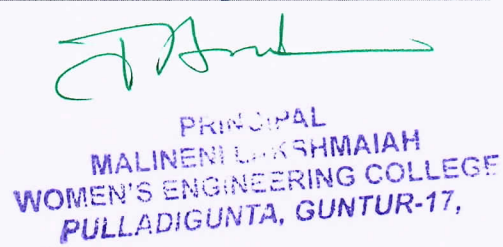 PRINCIPAL
MALINENI LAKSHMAIAH
WOMEN'S ENGINEERING COLLEGE
PULLADIGUNTA, GUNTUR-17,